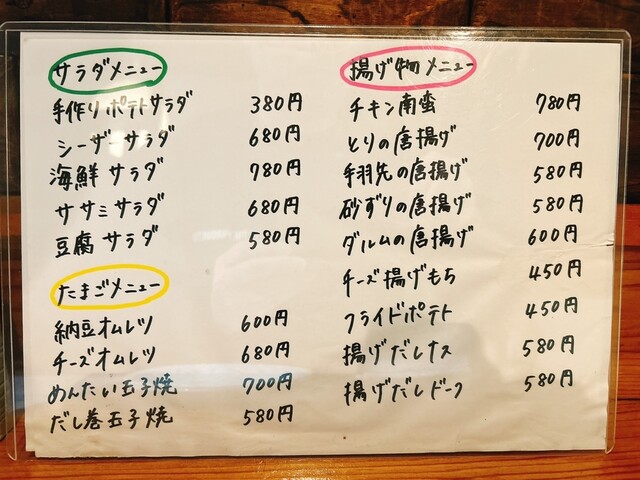 サラダメニュー
手作りポテトサラダ 380円
シーザーサラダ 680円
海鮮サラダ 780円
ササミサラダ 680円
豆腐サラダ 580円
たまごメニュー
納豆オムレツ 600円
チーズオムレツ 680円
めんたい玉子焼 700円
だし巻玉子焼 580円
揚げ物メニュー
チキン南蛮 780円
とりの唐揚げ 700円
手羽先の唐揚げ 580円
砂ずりの唐揚げ 580円
ダルムの唐揚げ 600円
チーズ揚げもち 450円
フライドポテト 450円
揚げだしナス 580円
揚げだしドーフ 580円